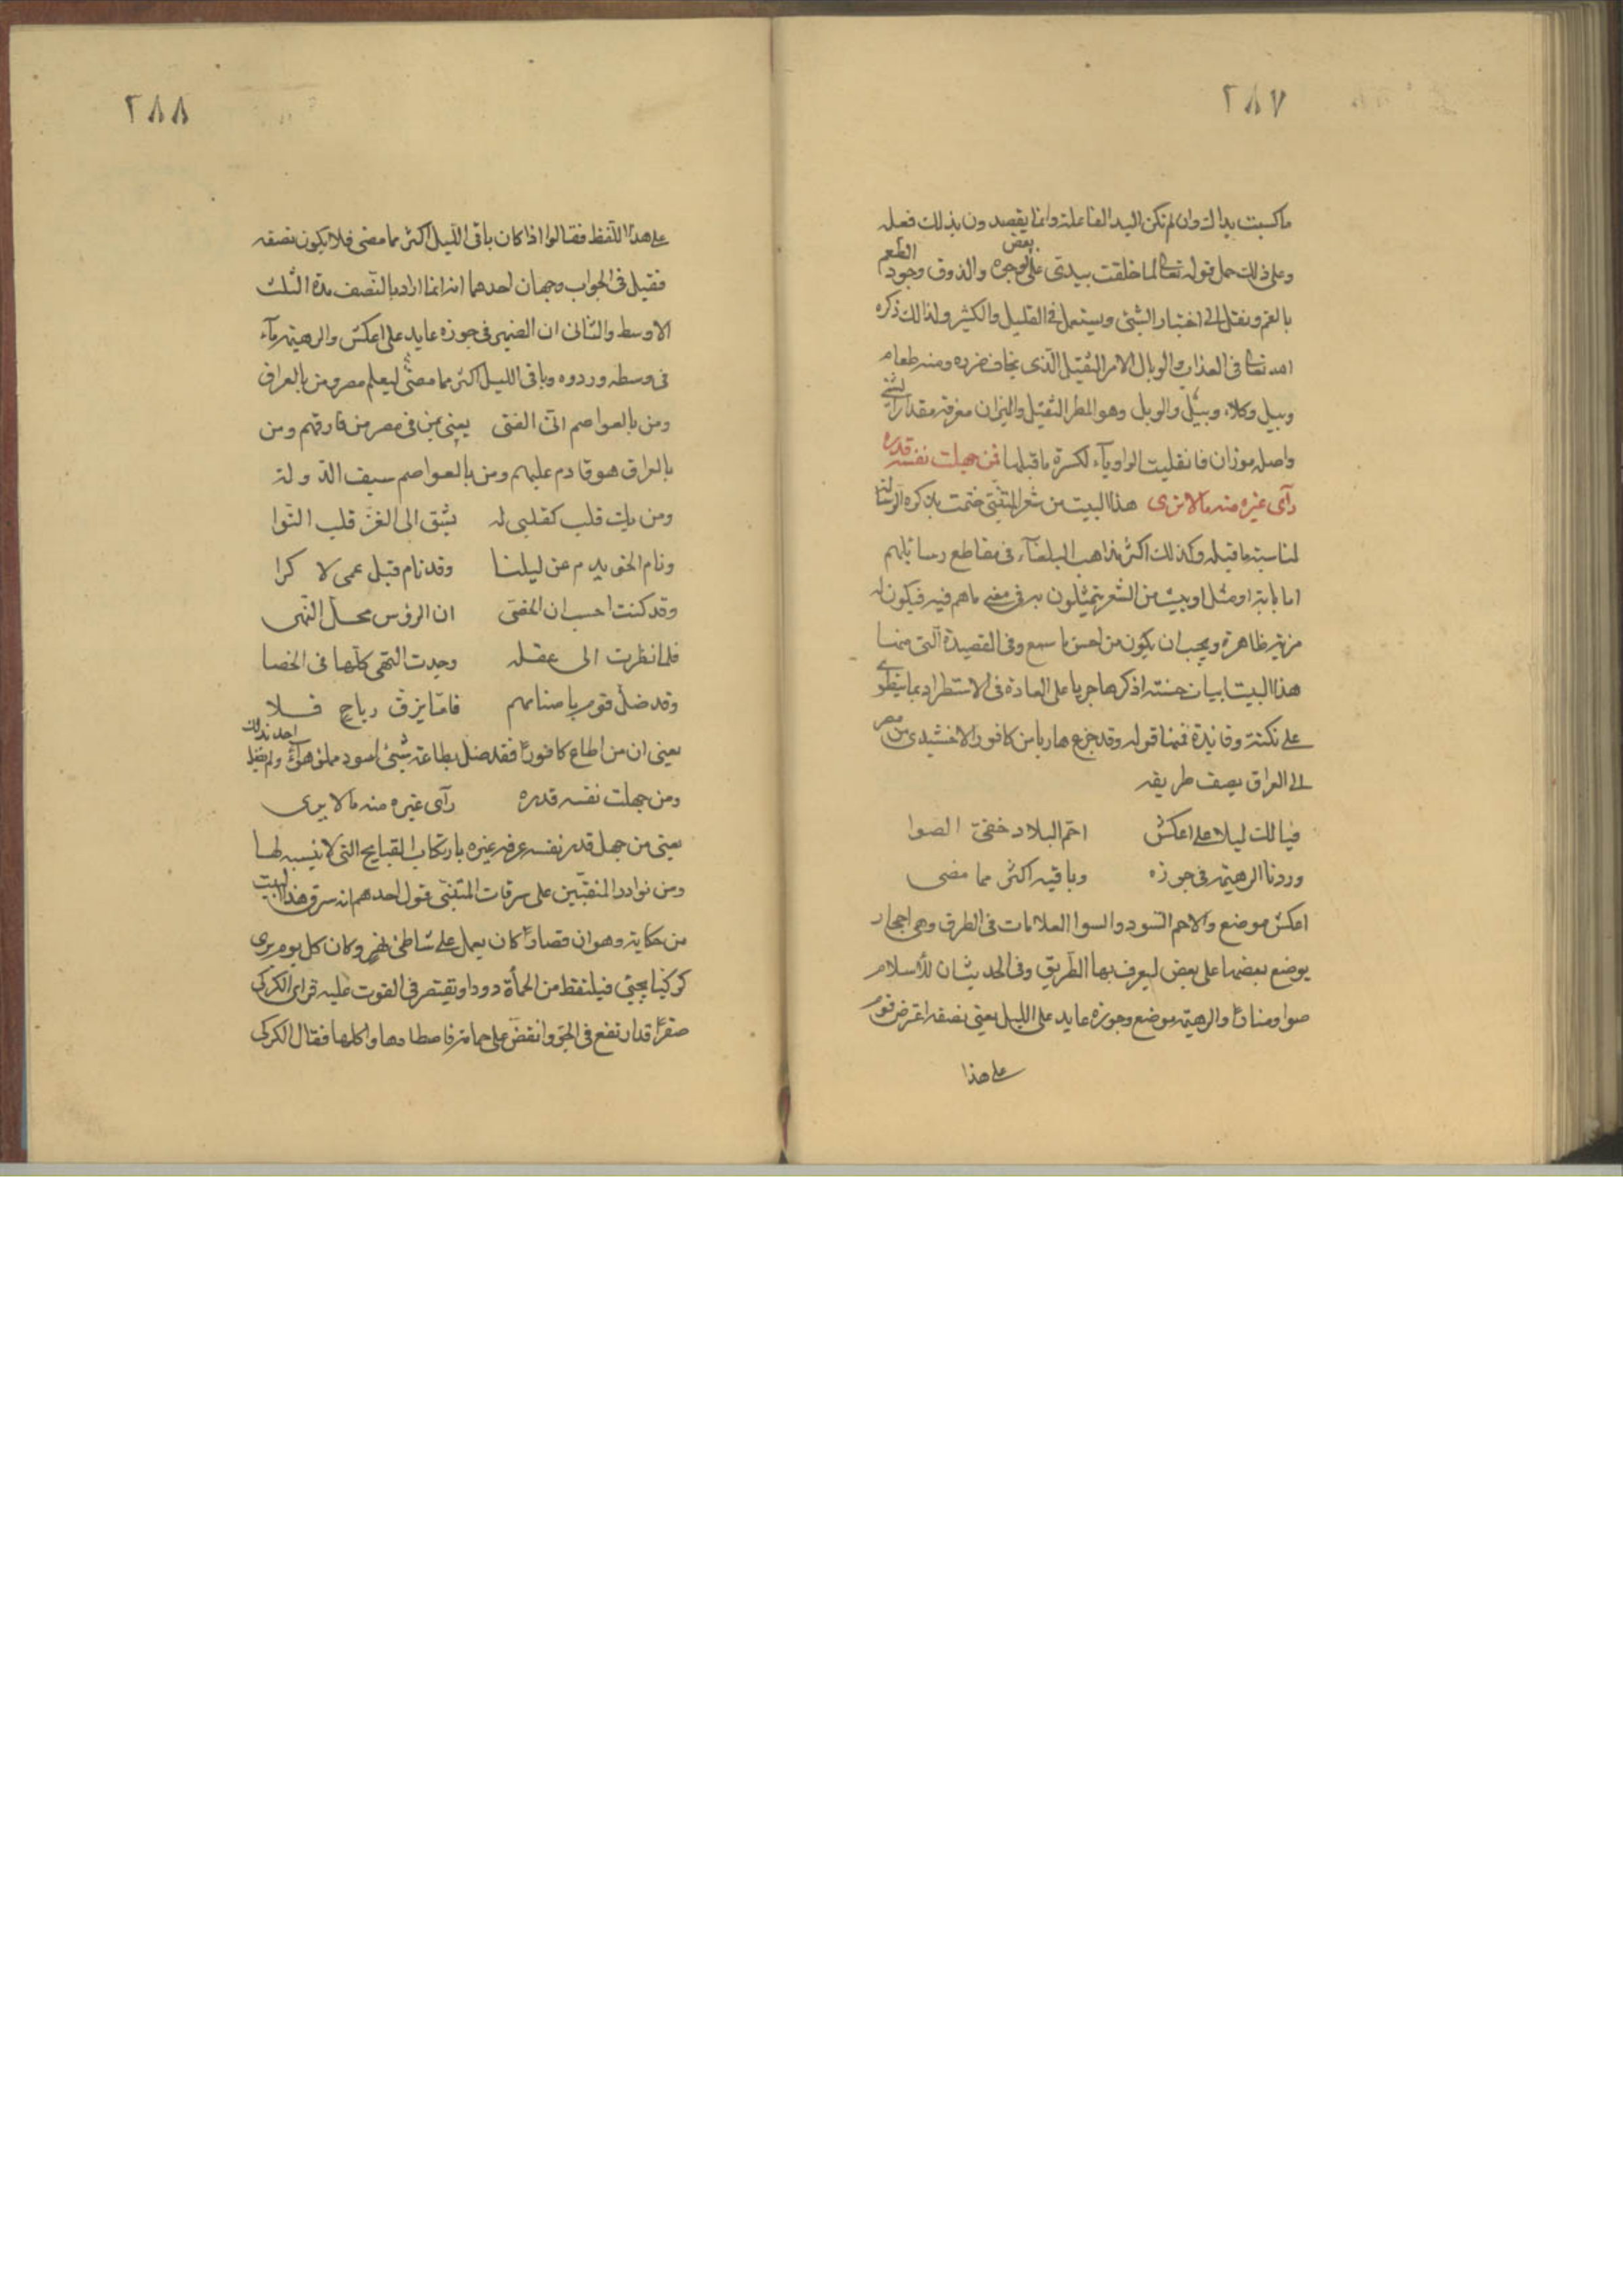 ٢٨٧
ما كسبت يداك وان لم تكن اليد الفاعلة وانما يقصدون بذلك فعله
وعلى ذلك حمل قوله تعالى لما خلقت بيدى على بعض الوجوه والذوق وجود الطعم
بالفم ونقل الى اختبار الشئ ويستعمل فى القليل والكثير ولذالك ذكره
الله تعالى فى العذاب والوبال الامر الثقيل الذى يخاف ضرره ومنه طعام
وبيل وكلاء وبيل والوبل وهو المطر الثقيل والميزان معرفة مقدار الشئ
واصله موزان فانقلبت الواو ياء لكسرة ما قبلها فمن جهلت نفسه قدره
رآى غيره منه مالا يرى هذا البيت من شعر المتنبى ختمت بذكره الرسالة
لمناسبة ما قبله وكذلك اكثر مذاهب البلغاء فى مقاطع رسائلهم
اما باية او مثل او بيت من الشعر يتمثلون به فى معنى ماهم فيه فيكون له
مزية ظاهرة ويجب ان يكون من احسن ما سمع وفى القصيدة التى منها
هذا البيت ابيات حسنة اذكرها جريا على العادة فى الاستطراد بما ينطوى
على نكتة وفائدة فمنها قوله وقد خرج هاربا من كافور الاخشيدى من مصر
الى العراق يصف طريقه
فيا لك ليلا على اعكش احم البلاد خفى الصوا
وردنا الرهيمة فى جوزه وباقيه اكثر مما مضى
اعكش موضع والاحم الاسود والصوا العلامات فى الطرق وهى احجار
يوضع بعضها على بعض ليعرف بها الطريق وفى الحديث ان للاسلام
صوا ومنارا والرهيمة موضع وجوزه عايد على الليل يعنى نصفه اعترض قوم
على هذا
٢٨٨
على هذا اللفظ فقالوا اذا كان باقى الليل اكثر مما مضى فلا يكون نصفه
فقيل فى الجواب وجهان احدهما انه انما اراد بالنصف مدة الثلث
الاوسط والثانى ان الضمير فى جوزه عايد على اعكش والرهيمة ماء
فى وسطه وردوه وباقى الليل اكثر مما مضى لتعلم مصر ومن بالعراق
ومن بالعواصم انى الفتى يعنى بمن فى مصر من فارقهم ومن
بالعراق هو قادم عليهم ومن بالعواصم سيف الدولة
ومن يك قلب كقلبى له يشق الى العز قلب التوا
ونام الخويدم عن ليلنا وقد نام قبل عمى لا كرا
وقد كنت احسب ان الخصى ان الرؤس محل النهى
فلما نظرت الى عقله وجدت النهى كلها فى الخصا
وقد ضل قوم باصنامهم فاما بزق رياح فلا
يعنى ان من اطاع كافورا فقد ضل بطاعة شئ اسود مملؤ هواء ولم يضل احد بذلك
ومن جهلت نفسه قدره رآى غيره منه مالا يرى
يعنى من جهل قدر نفسه عرفه غيره بارتكاب القبايح التى لا ينسبه لها
ومن نوادر المنقبين على سرقات المتنبى قول احدهم انه سرق هذا البيت
من حكاية وهو ان قصارا كان يعمل على شاطئ نهر وكان كل يوم يرى
كركيا يجئ فيلتقط من الحمأة دودا ويقتصر فى القوت عليه فراى الكركى
صقرا قد ارتفع فى الجو وانقض على حمامة فاصطادها واكلها فقال الكركى